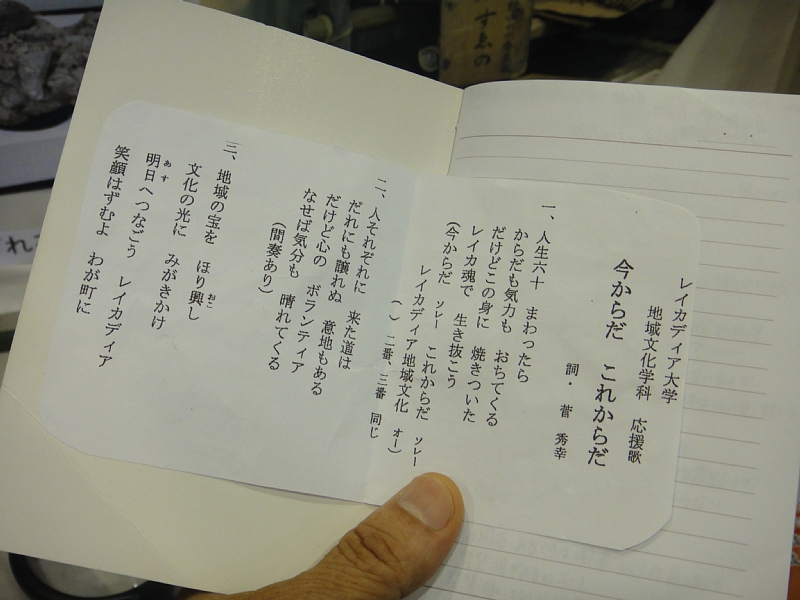 レイカディア大学
地域文化学科　応援歌
今からだ　これからだ
詞・　菅　秀幸
一、人生六十　まわったら
からだも気力も　おちてくる
だけどこの身に　焼きついた
レイカ魂で　生き抜こう
(今からだ　ソレー　これからだ　ソレー
レイカディア地域文化　オー)
(　)　二番、三番　同じ
二、人それぞれに　来た道は
だれにも譲れぬ　意地もある
だけど心の　ボランティア
なせば気分も　晴れてくる
(間奏あり)
三、地域の宝を　ほり興し
おこ
文化の光に　みがきかけ
明日へつなごう　レイカディア
あす
笑顔はずむよ　わが町に
すゑの